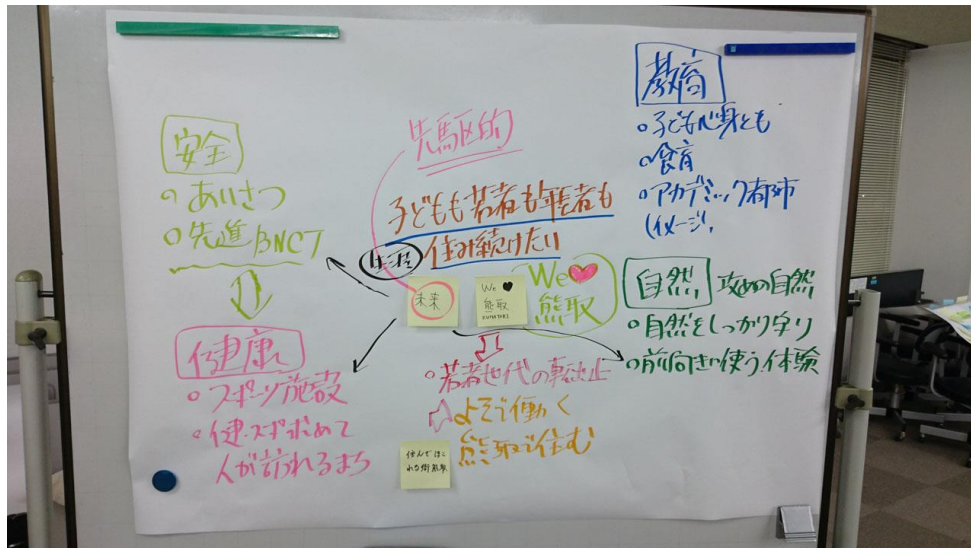 安全
○あいさつ
○先進BNCT
健康
○スポーツ施設
○健・スポ求めて
人が訪れるまち
先駆的
子どもも若者も年長者も
生涯 住み続けたい
未来
We ♥
熊取
We ♥
熊取
○若者世代の転出止
☆よそで働く
熊取で住む
住んでほこ
れる街熊取
教育
○子ども心身とも
○食育
○アカデミック都市
(イメージ)
自然 攻めの自然
○自然をしっかり守り
○前向きに使う体験